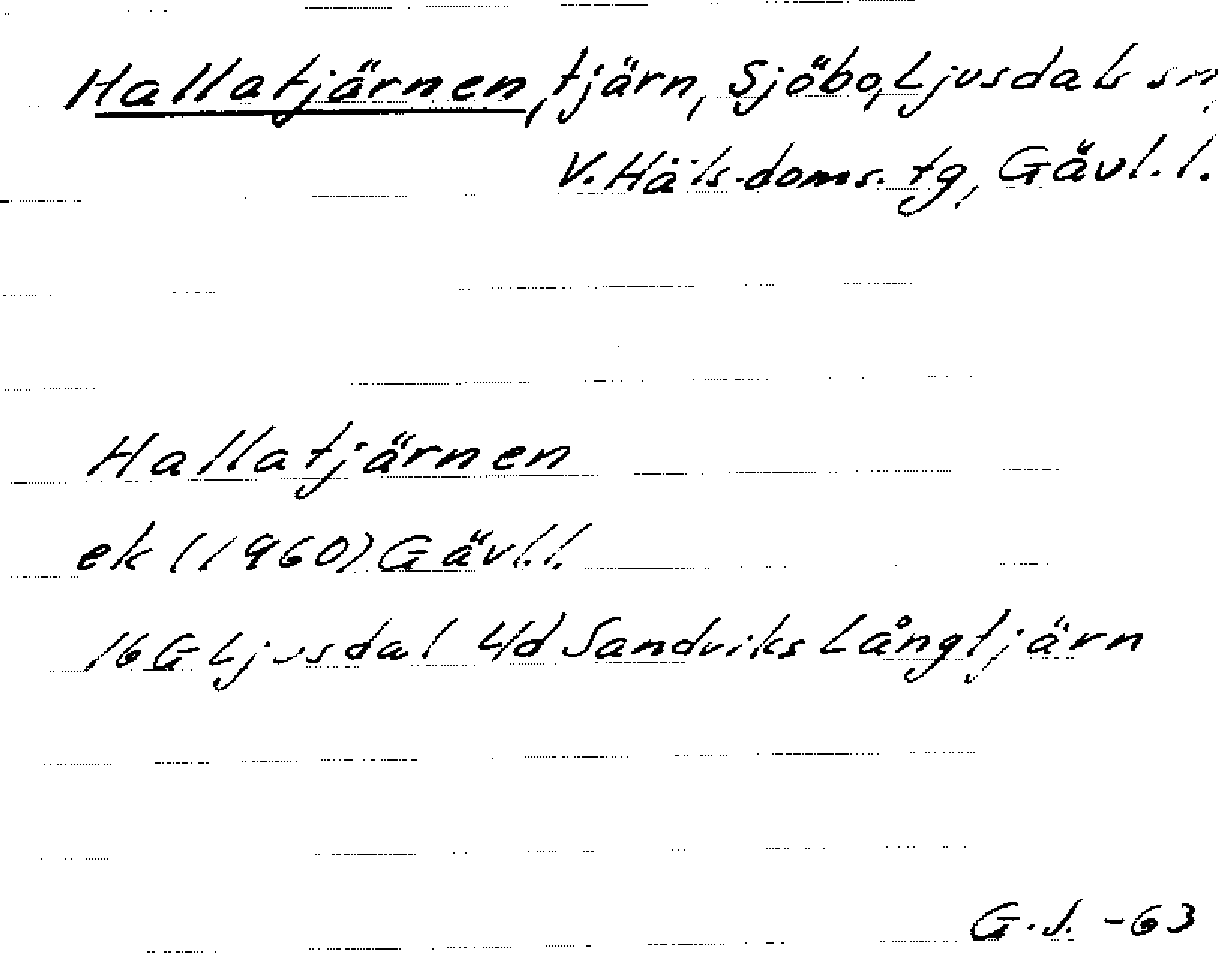 Hallatjärnen, tjärn, Sjöbo, Ljusdals sn,
V. Häls. doms. tg, Gävl. l.
Hallatjärnen
ek (1960) Gävl. l.
16 G Ljusdal 4d Sandviks Långtjärn
G. J. -63